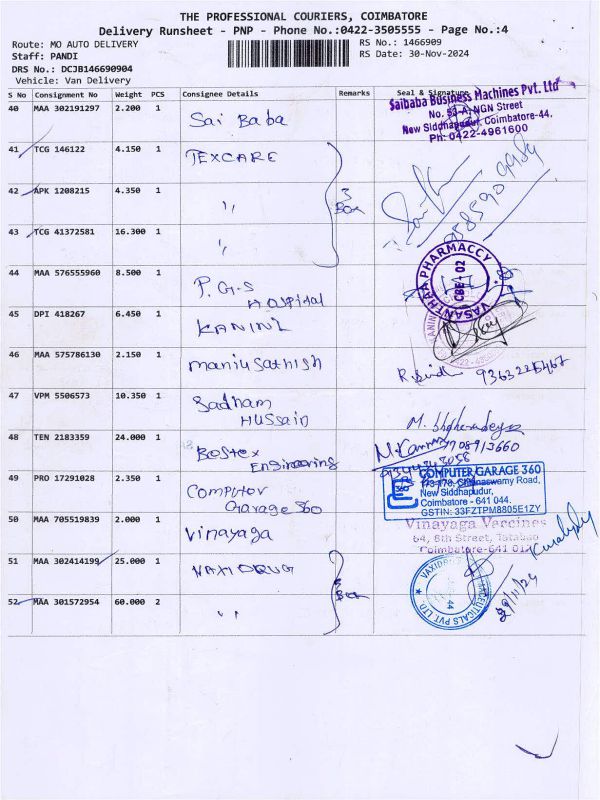 THE PROFESSIONAL COURIERS, COIMBATORE
Delivery Runsheet - PNP - Phone No.:0422-3505555 - Page No.:4
Route: MO AUTO DELIVERY
RS No.: 1466909
Staff: PANDI
RS Date: 30-Nov-2024
DRS No.: DCJB146690904
Vehicle: Van Delivery
S No Consignment No Weight PCS Consignee Details Remarks Seal & Signature
40 MAA 302191297 2.200 1 Sai Baba
Saibaba Business Machines Pvt. Ltd
NGN Street
New Siddhapudur, Coimbatore-44.
Ph: 0422-4961600
41 TCG 146122 4.150 1 TEXCARE
42 APK 1208215 4.350 1 ,, 3 Box
43 TCG 41372581 16.300 1 ,,
44 MAA 576555960 8.500 1 P.G.S Hospital
VASANTHAA PHARMACCY
CBE - 02
45 DPI 418267 6.450 1 KANINI
46 MAA 575786130 2.150 1 maniusathish
47 VPM 5506573 10.350 1 Sadham
Hussain
48 TEN 2183359 24.000 1 Bostex
Engineering
49 PRO 17291028 2.350 1 Computer
Garage 360
COMPUTER GARAGE 360
New Siddapudur,
Coimbatore - 641 044.
GSTIN: 33FZTPM8805E1ZY
50 MAA 705519839 2.000 1 Vinayaga
Vinayaga Vaccines
64, 8th Street, Tatabad
Coimbatore-641 012
51 MAA 302414199 25.000 1 VAXIDRUG
52 MAA 301572954 60.000 2 ,,